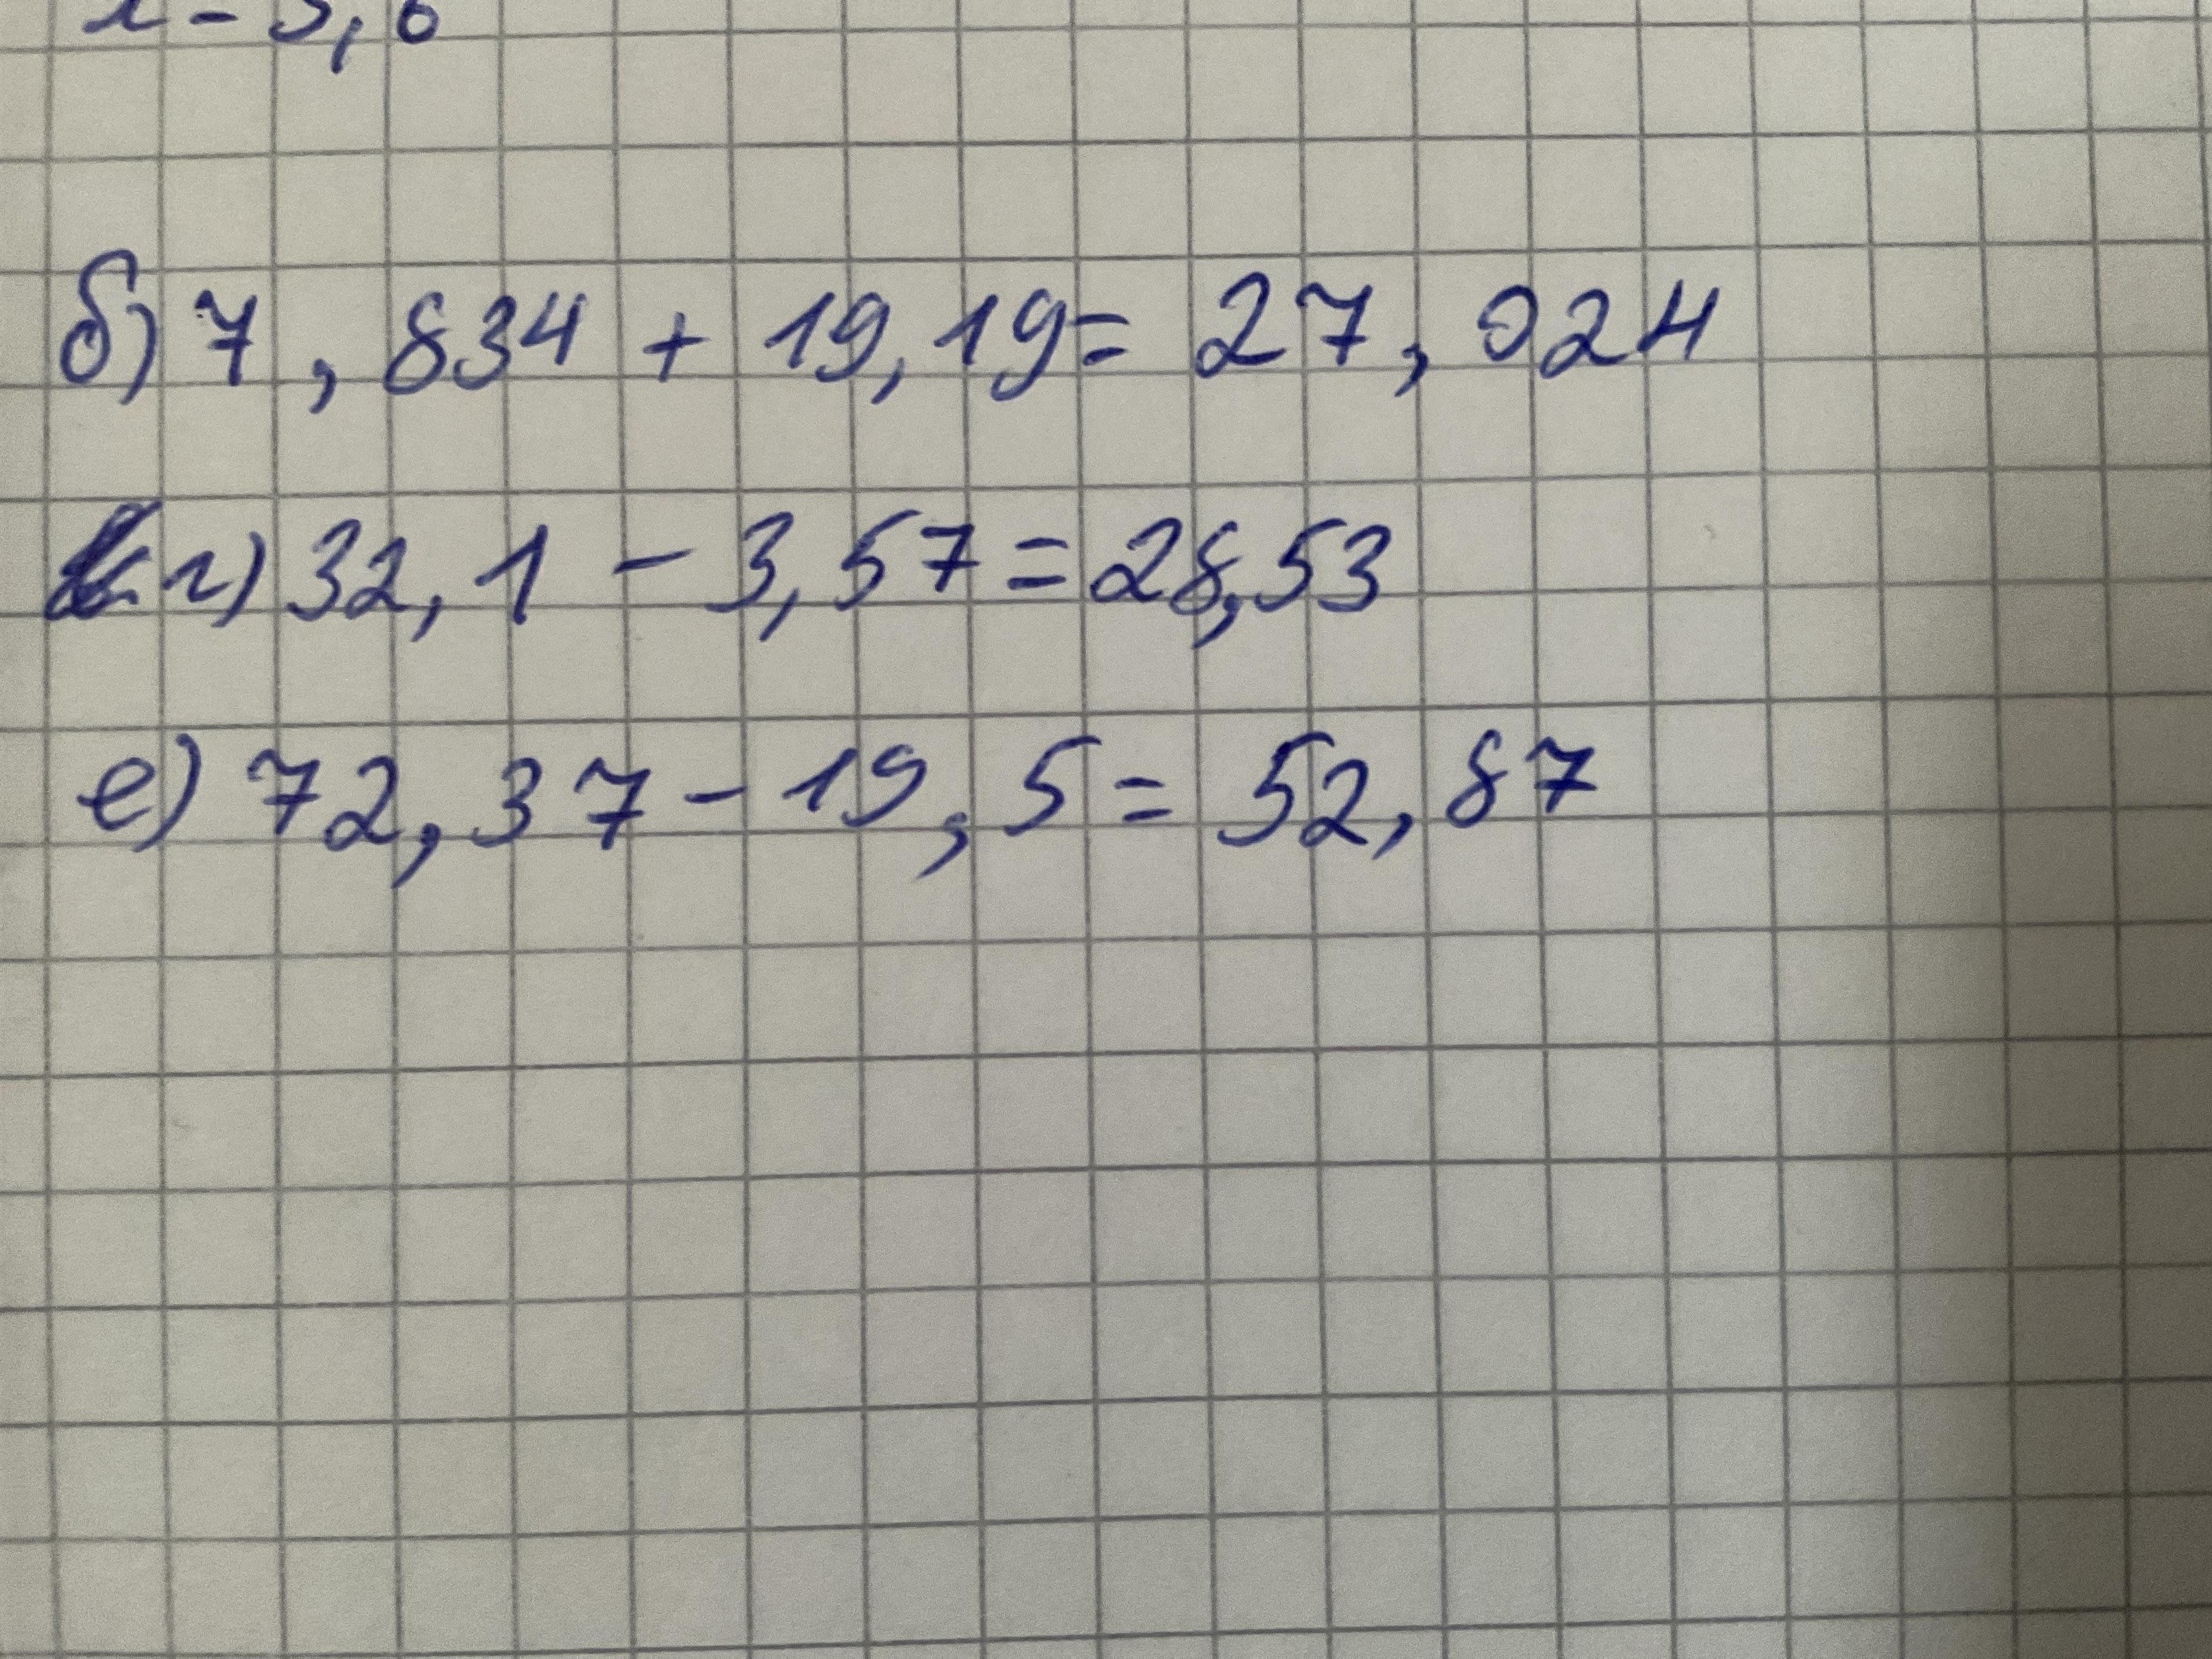 б) 7,834 + 19,19 = 27,024
г) 32,1 - 3,57 = 28,53
е) 72,37 - 19,5 = 52,87